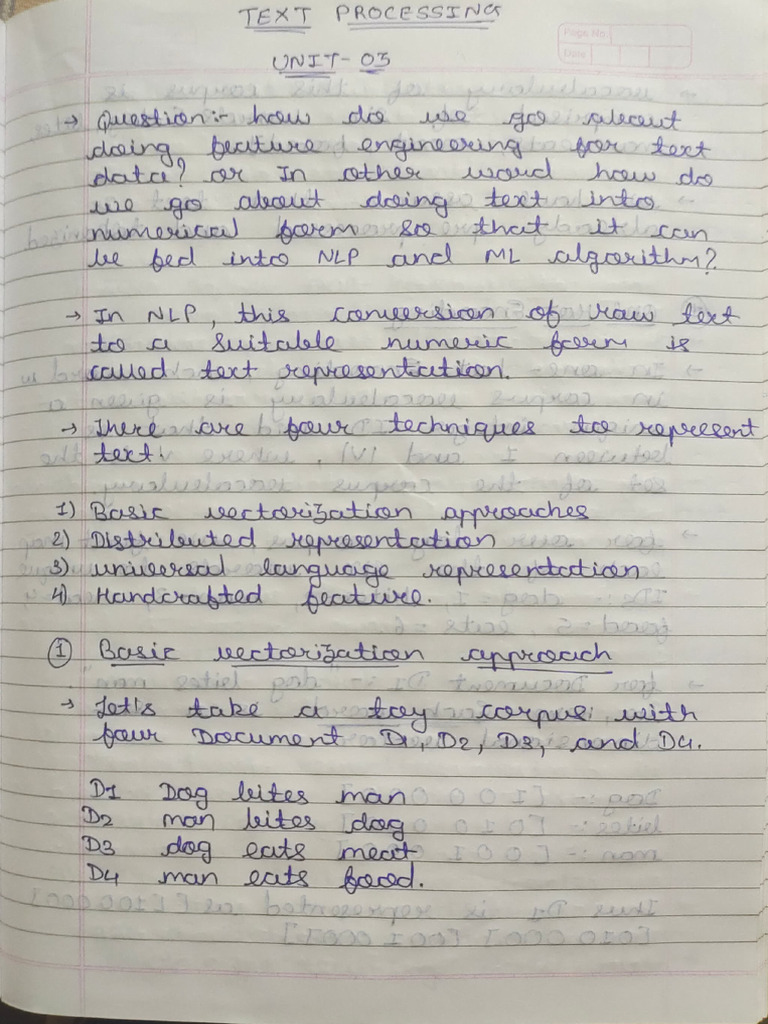 TEXT PROCESSING
UNIT-03
Page No.
Date
→ Question:- how do we go about
doing feature engineering for text
data? or In other word how do
we go about doing text into
numerical form so that it can
be fed into NLP and ML algorithm?
→ In NLP, this conversion of raw text
to a suitable numeric form is
called text representation.
→ There are four techniques to represent
text:
1) Basic vectorization approaches
2) Distributed representation
3) universal language representation
4) Handcrafted feature.
① Basic vectorization approach
→ Let's take a toy corpus with
four Document D1, D2, D3, and D4.
D1 Dog bites man
D2 man bites dog
D3 dog eats meat
D4 man eats food.